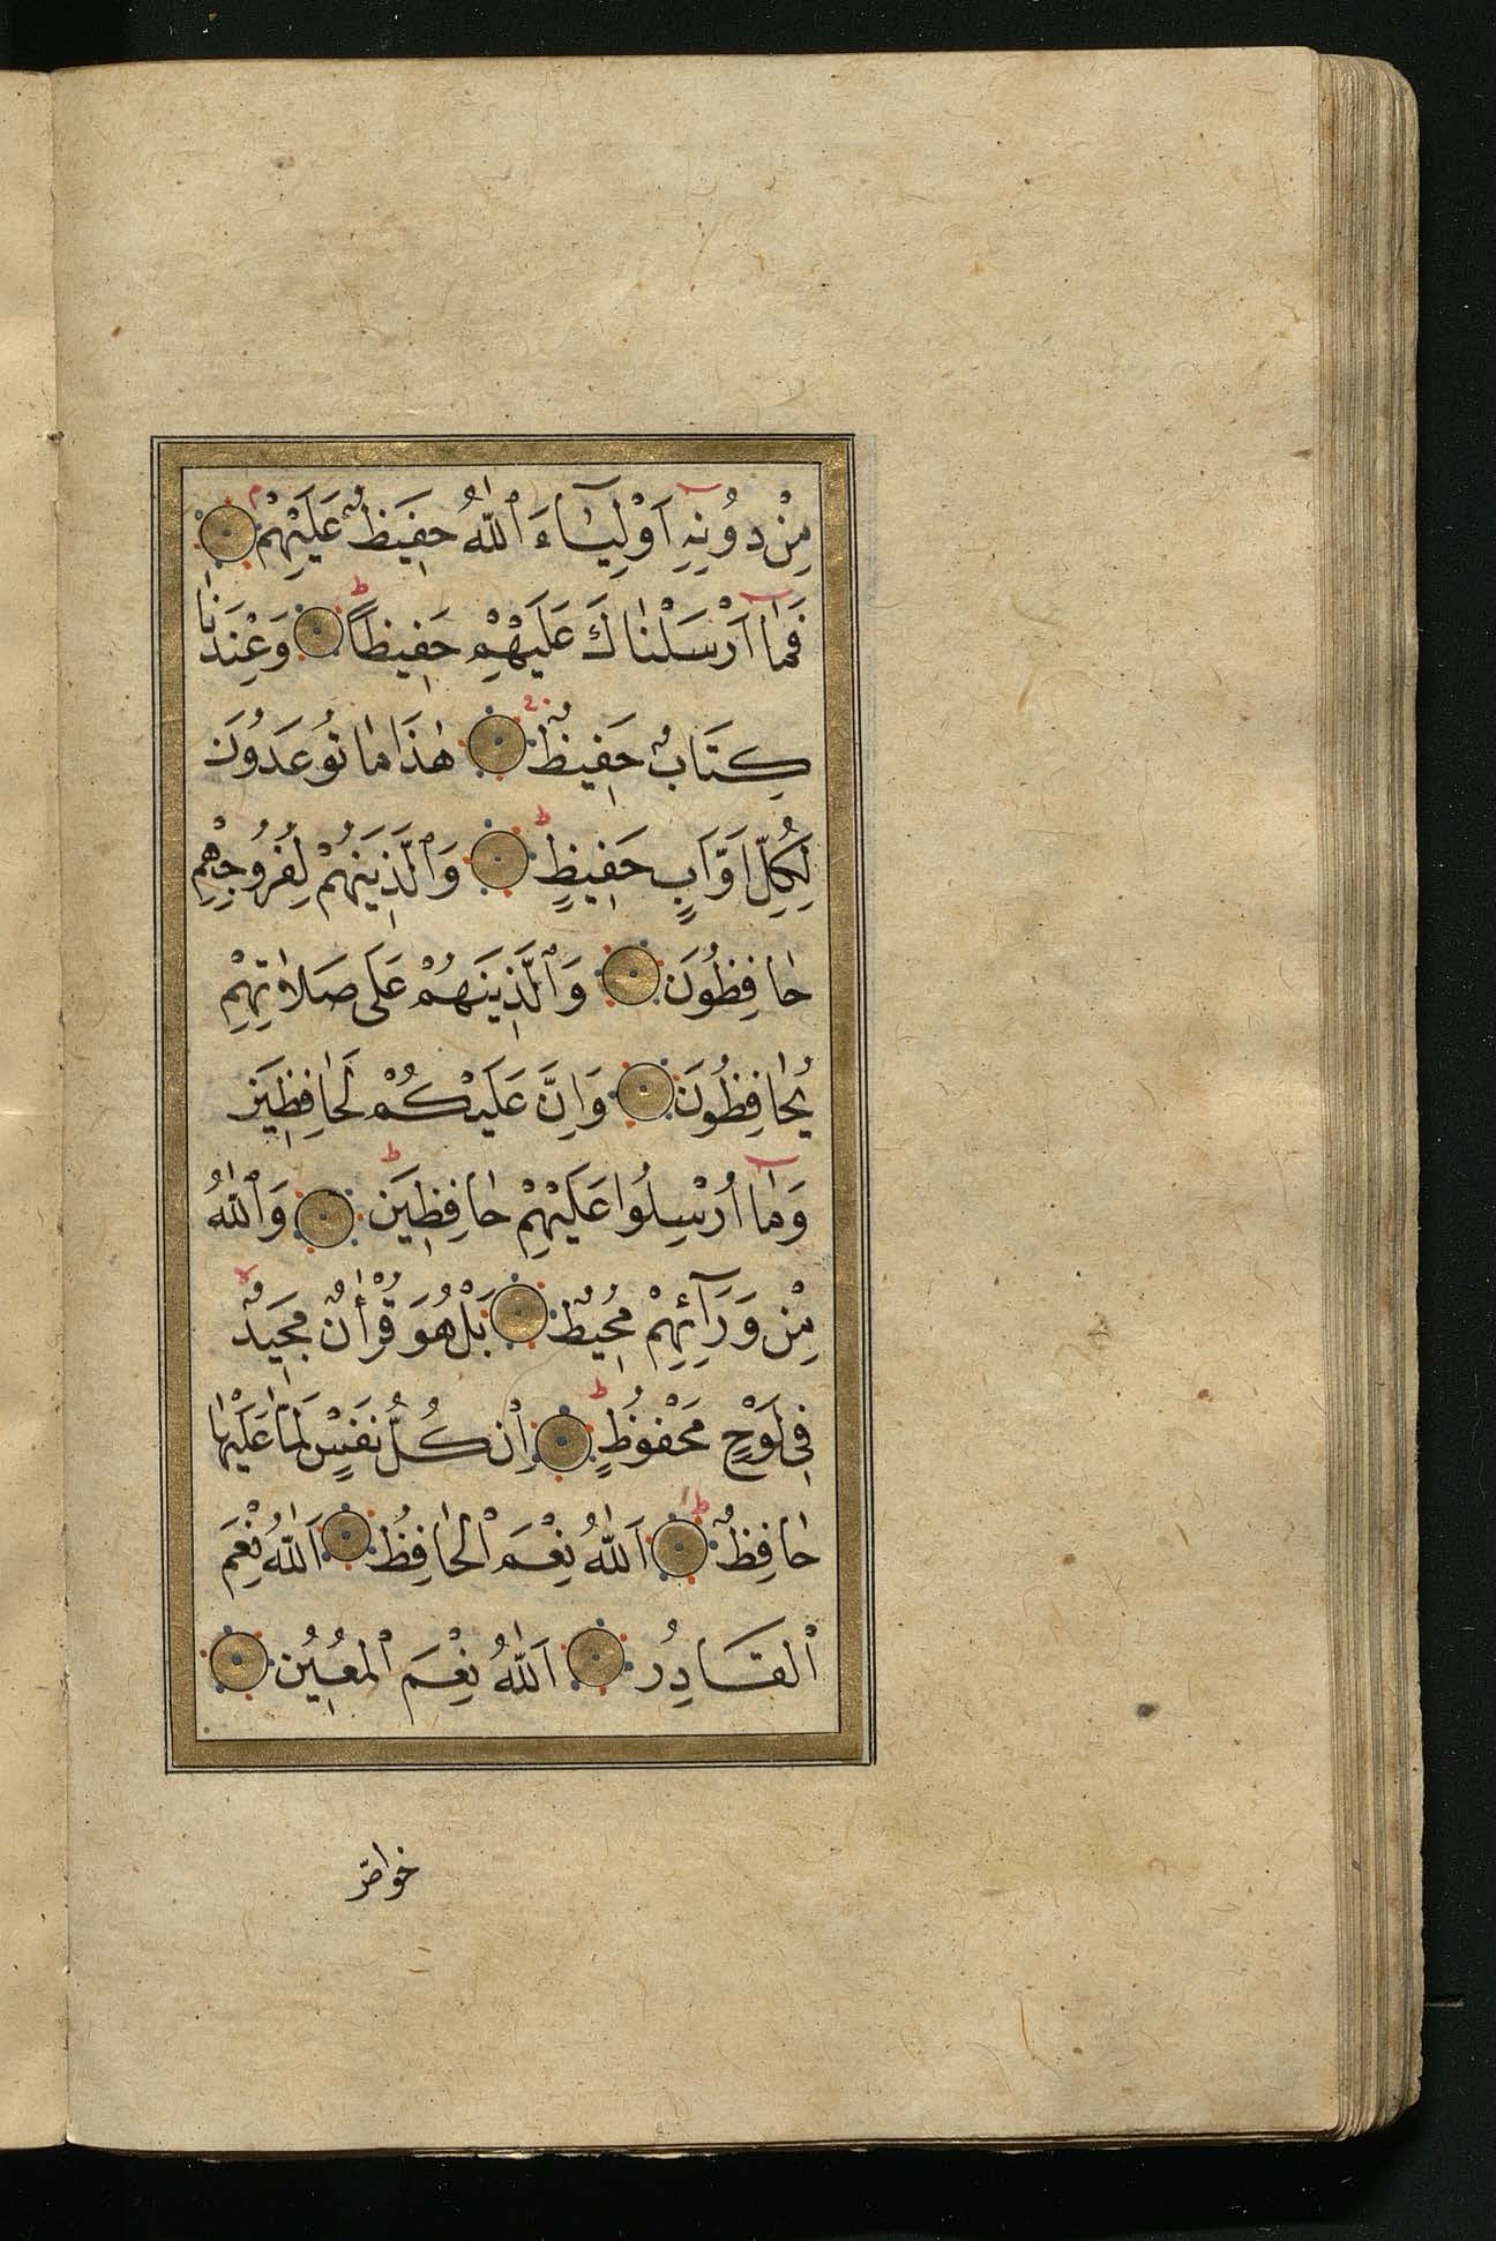 مِنْ دُونِهِ اَوْلِيَٓاءَ ٱللّٰهُ حَفِيظٌ عَلَيْهِمْ
فَمَٓا اَرْسَلْنَاكَ عَلَيْهِمْ حَفِيظًا وَعِنْدَنَا
كِتَابٌ حَفِيظٌ هٰذَا مَا تُوعَدُونَ
لِكُلِّ اَوَّابٍ حَفِيظٍ وَٱلَّذِينَ هُمْ لِفُرُوجِهِمْ
حَافِظُونَ وَٱلَّذِينَ هُمْ عَلَى صَلَاتِهِمْ
يُحَافِظُونَ وَاِنَّ عَلَيْكُمْ لَحَافِظِينَ
وَمَٓا اُرْسِلُوا عَلَيْهِمْ حَافِظِينَ وَٱللّٰهُ
مِنْ وَرَٓائِهِمْ مُحِيطٌ بَلْ هُوَ قُرْاٰنٌ مَجِيدٌ
فِي لَوْحٍ مَحْفُوظٍ اِنْ كُلُّ نَفْسٍ لَمَّا عَلَيْهَا
حَافِظٌ اَللّٰهُ نِعْمَ ٱلْحَافِظُ اَللّٰهُ نِعْمَ
ٱلْقَادِرُ اَللّٰهُ نِعْمَ ٱلْمُعِينُ